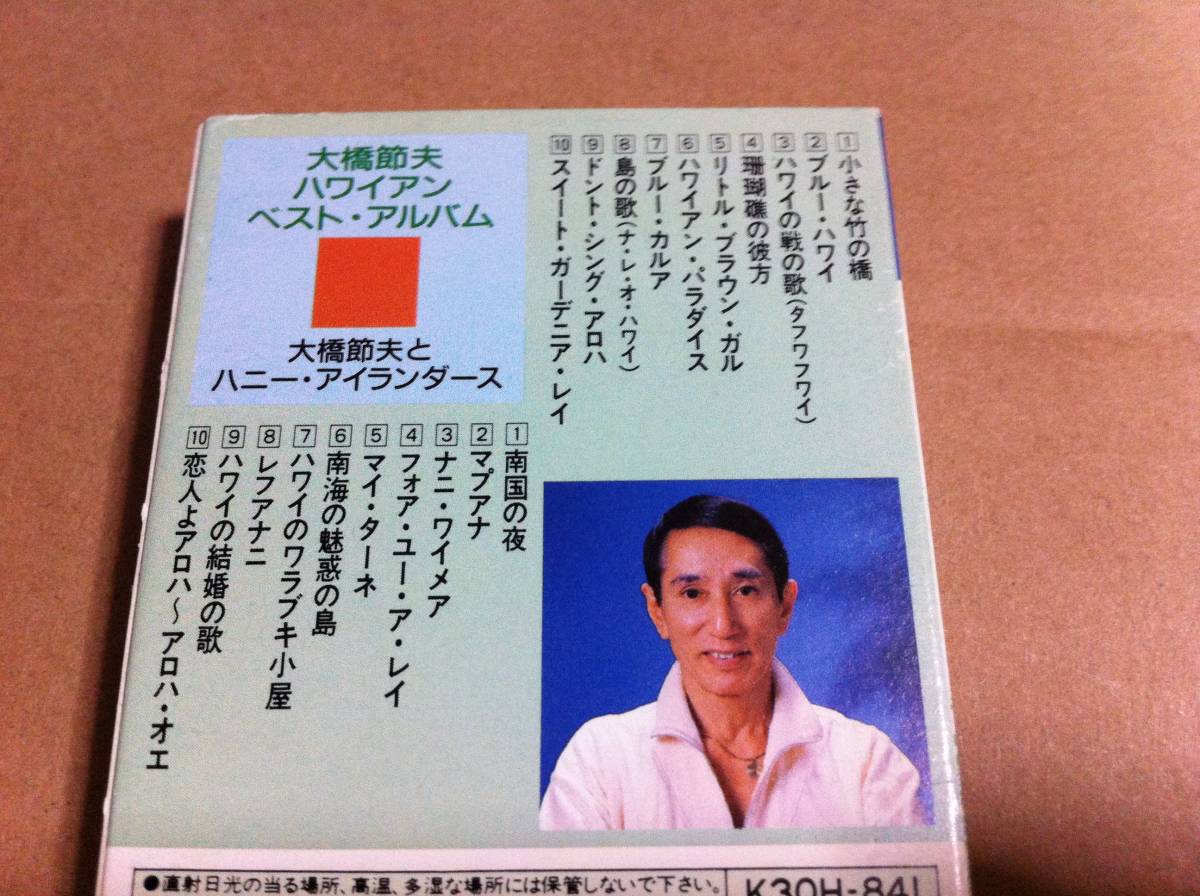 大橋節夫
ハワイアン
ベスト・アルバム
大橋節夫と
ハニー・アイランダース
1 小さな竹の橋
2 ブルー・ハワイ
3 ハワイの戦の歌(タフワフワイ)
4 珊瑚礁の彼方
5 リトル・ブラウン・ガル
6 ハワイアン・パラダイス
7 ブルー・カルア
8 島の歌(ナ・レ・オ・ハワイ)
9 ドント・シング・アロハ
10 スイート・ガーデニア・レイ
1 南国の夜
2 マプアナ
3 ナニ・ワイメア
4 フォア・ユー・ア・レイ
5 マイ・ターネ
6 南海の魅惑の島
7 ハワイのワラブキ小屋
8 レフアナニ
9 ハワイの結婚の歌
10 恋人よアロハ〜アロハ・オエ
●直射日光の当る場所、高温、多湿な場所には保管しないで下さい。
K30H-841